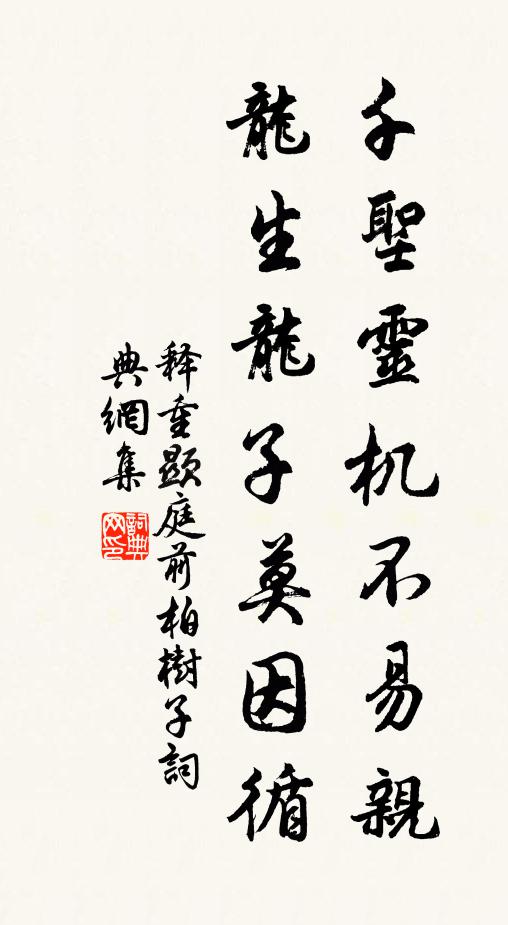 千聖靈机不易親
龍生龍子莫因循
释重顯庭前柏樹子詞
典網集
詞典网印